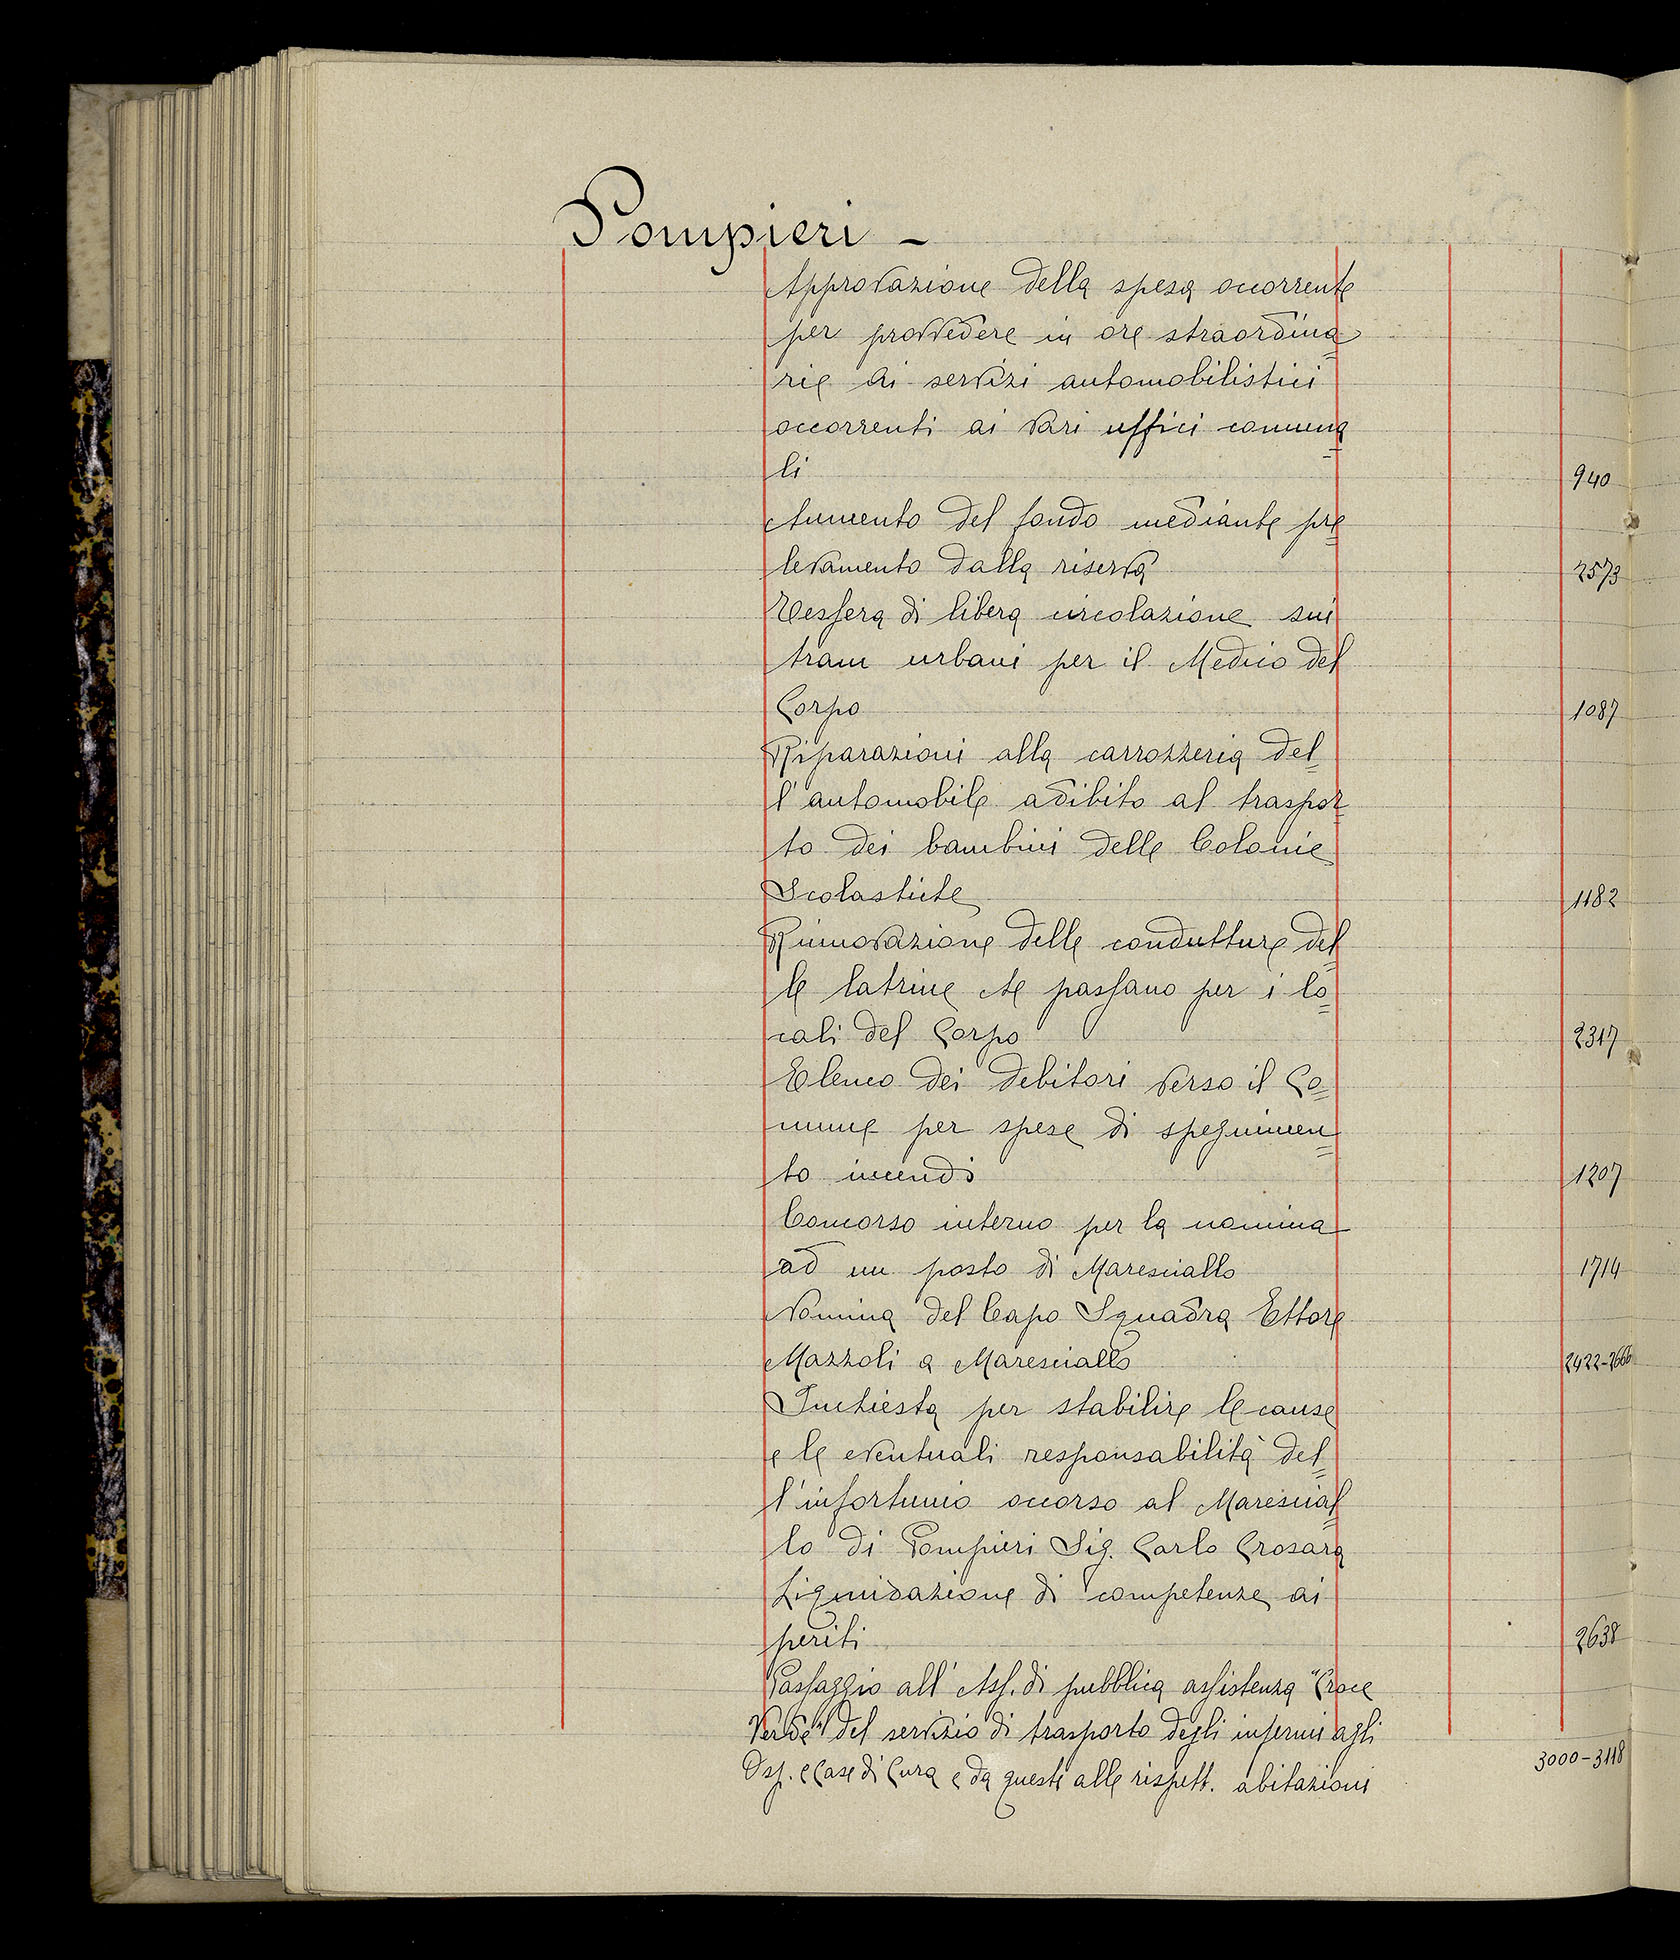 Pompieri -
Approvazione della spesa occorrente
per provvedere in ore straordina=
rie ai servizi automobilistici
occorrenti ai vari uffici comuna=
li 940
Aumento del fondo mediante pre=
levamento dalla riserva 2573
Tessera di libera circolazione sui
tram urbani per il Medico del
Corpo 1087
Riparazioni alla carrozzeria del=
l'automobile adibito al traspor=
to dei bambini delle Colonie
Scolastiche 1182
Rinnovazione delle condutture del=
le latrine che passano per i lo=
cali del Corpo 2317
Elenco dei debitori verso il Co=
mune per spese di spegnimen=
to incendi 1207
Concorso interno per la nomina
ad un posto di Maresciallo 1714
Nomina del Capo Squadra Ettore
Mazzoli a Maresciallo 2422-2666
Inchiesta per stabilire le cause
e le eventuali responsabilità del=
l'infortunio occorso al Marescial=
lo di Pompieri Sig. Carlo Crosara
Liquidazione di competenze ai
periti 2638
Passaggio all'Ass. di pubblica assistenza "Croce
Verde" del servizio di trasporto degli infermi agli
Osp. e Case di Cura e da queste alle rispett. abitazioni 3000-3118